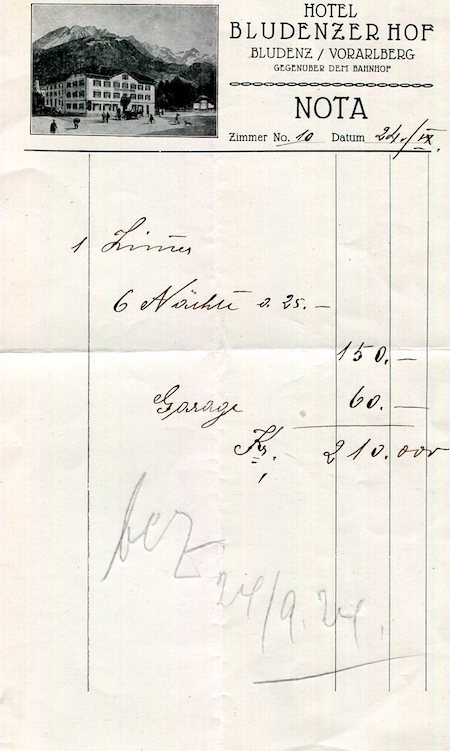 HOTEL
BLUDENZER HOF
BLUDENZ / VORARLBERG
GEGENÜBER DEM BAHNHOF
NOTA
Zimmer No. 10 Datum 24./IX.
1 Zimmer
6 Nächte a 25.—
150.—
Garage 60.—
Kr. 210.000
bez
24/9.24.